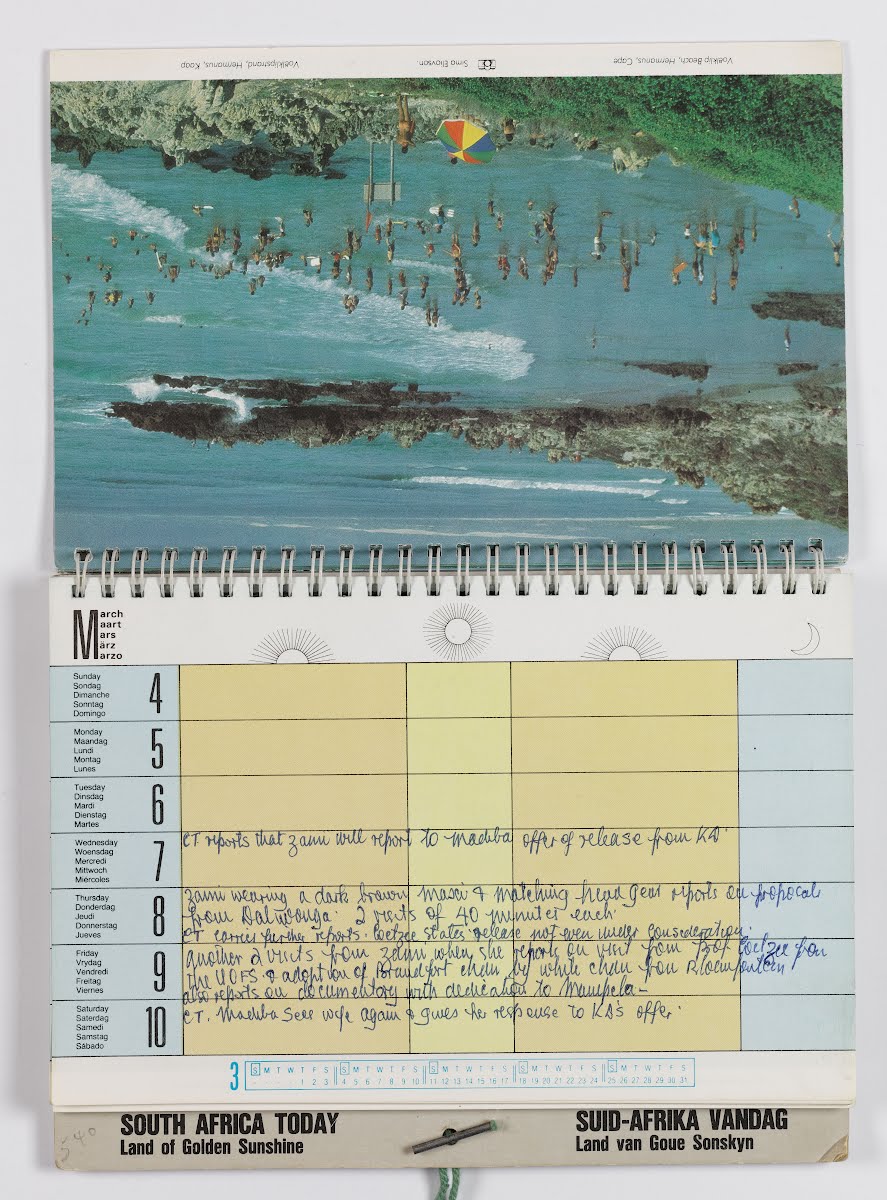 Voelklip Beach, Hermanus, Cape
Sima Eliovson
Voelklipstrand, Hermanus, Kaap
March
Maart
Mars
März
Marzo
Sunday
Sondag
Dimanche
Sonntag
Domingo
4
Monday
Maandag
Lundi
Montag
Lunes
5
Tuesday
Dinsdag
Mardi
Dienstag
Martes
6
Wednesday
Woensdag
Mercredi
Mittwoch
Miércoles
7
CT reports that Zami will report to Madiba offer of release from KD.
Thursday
Donderdag
Jeudi
Donnerstag
Jueves
8
Zami wearing a dark brown maxi & matching head gear reports on proposals
from Daliwonga. 2 visits of 40 minutes each.
CT carries further reports. Coetzee states release not even under consideration.
Friday
Vrydag
Vendredi
Freitag
Viernes
9
another 2 visits from Zami when she reports on visit from Prof Coetzee from
the UOFS & adoption of Brandfort by white from Bloemfontein
also reports on documentary with dedication to Mampela -
Saturday
Saterdag
Samedi
Samstag
Sábado
10
CT. Madiba sees wife again & gives her response to KD's offer.
3
S M T W T F S S M T W T F S S M T W T F S S M T W T F S S M T W T F S
1 2 3 4 5 6 7 8 9 10 11 12 13 14 15 16 17 18 19 20 21 22 23 24 25 26 27 28 29 30 31
540
SOUTH AFRICA TODAY
Land of Golden Sunshine
SUID-AFRIKA VANDAG
Land van Goue Sonskyn